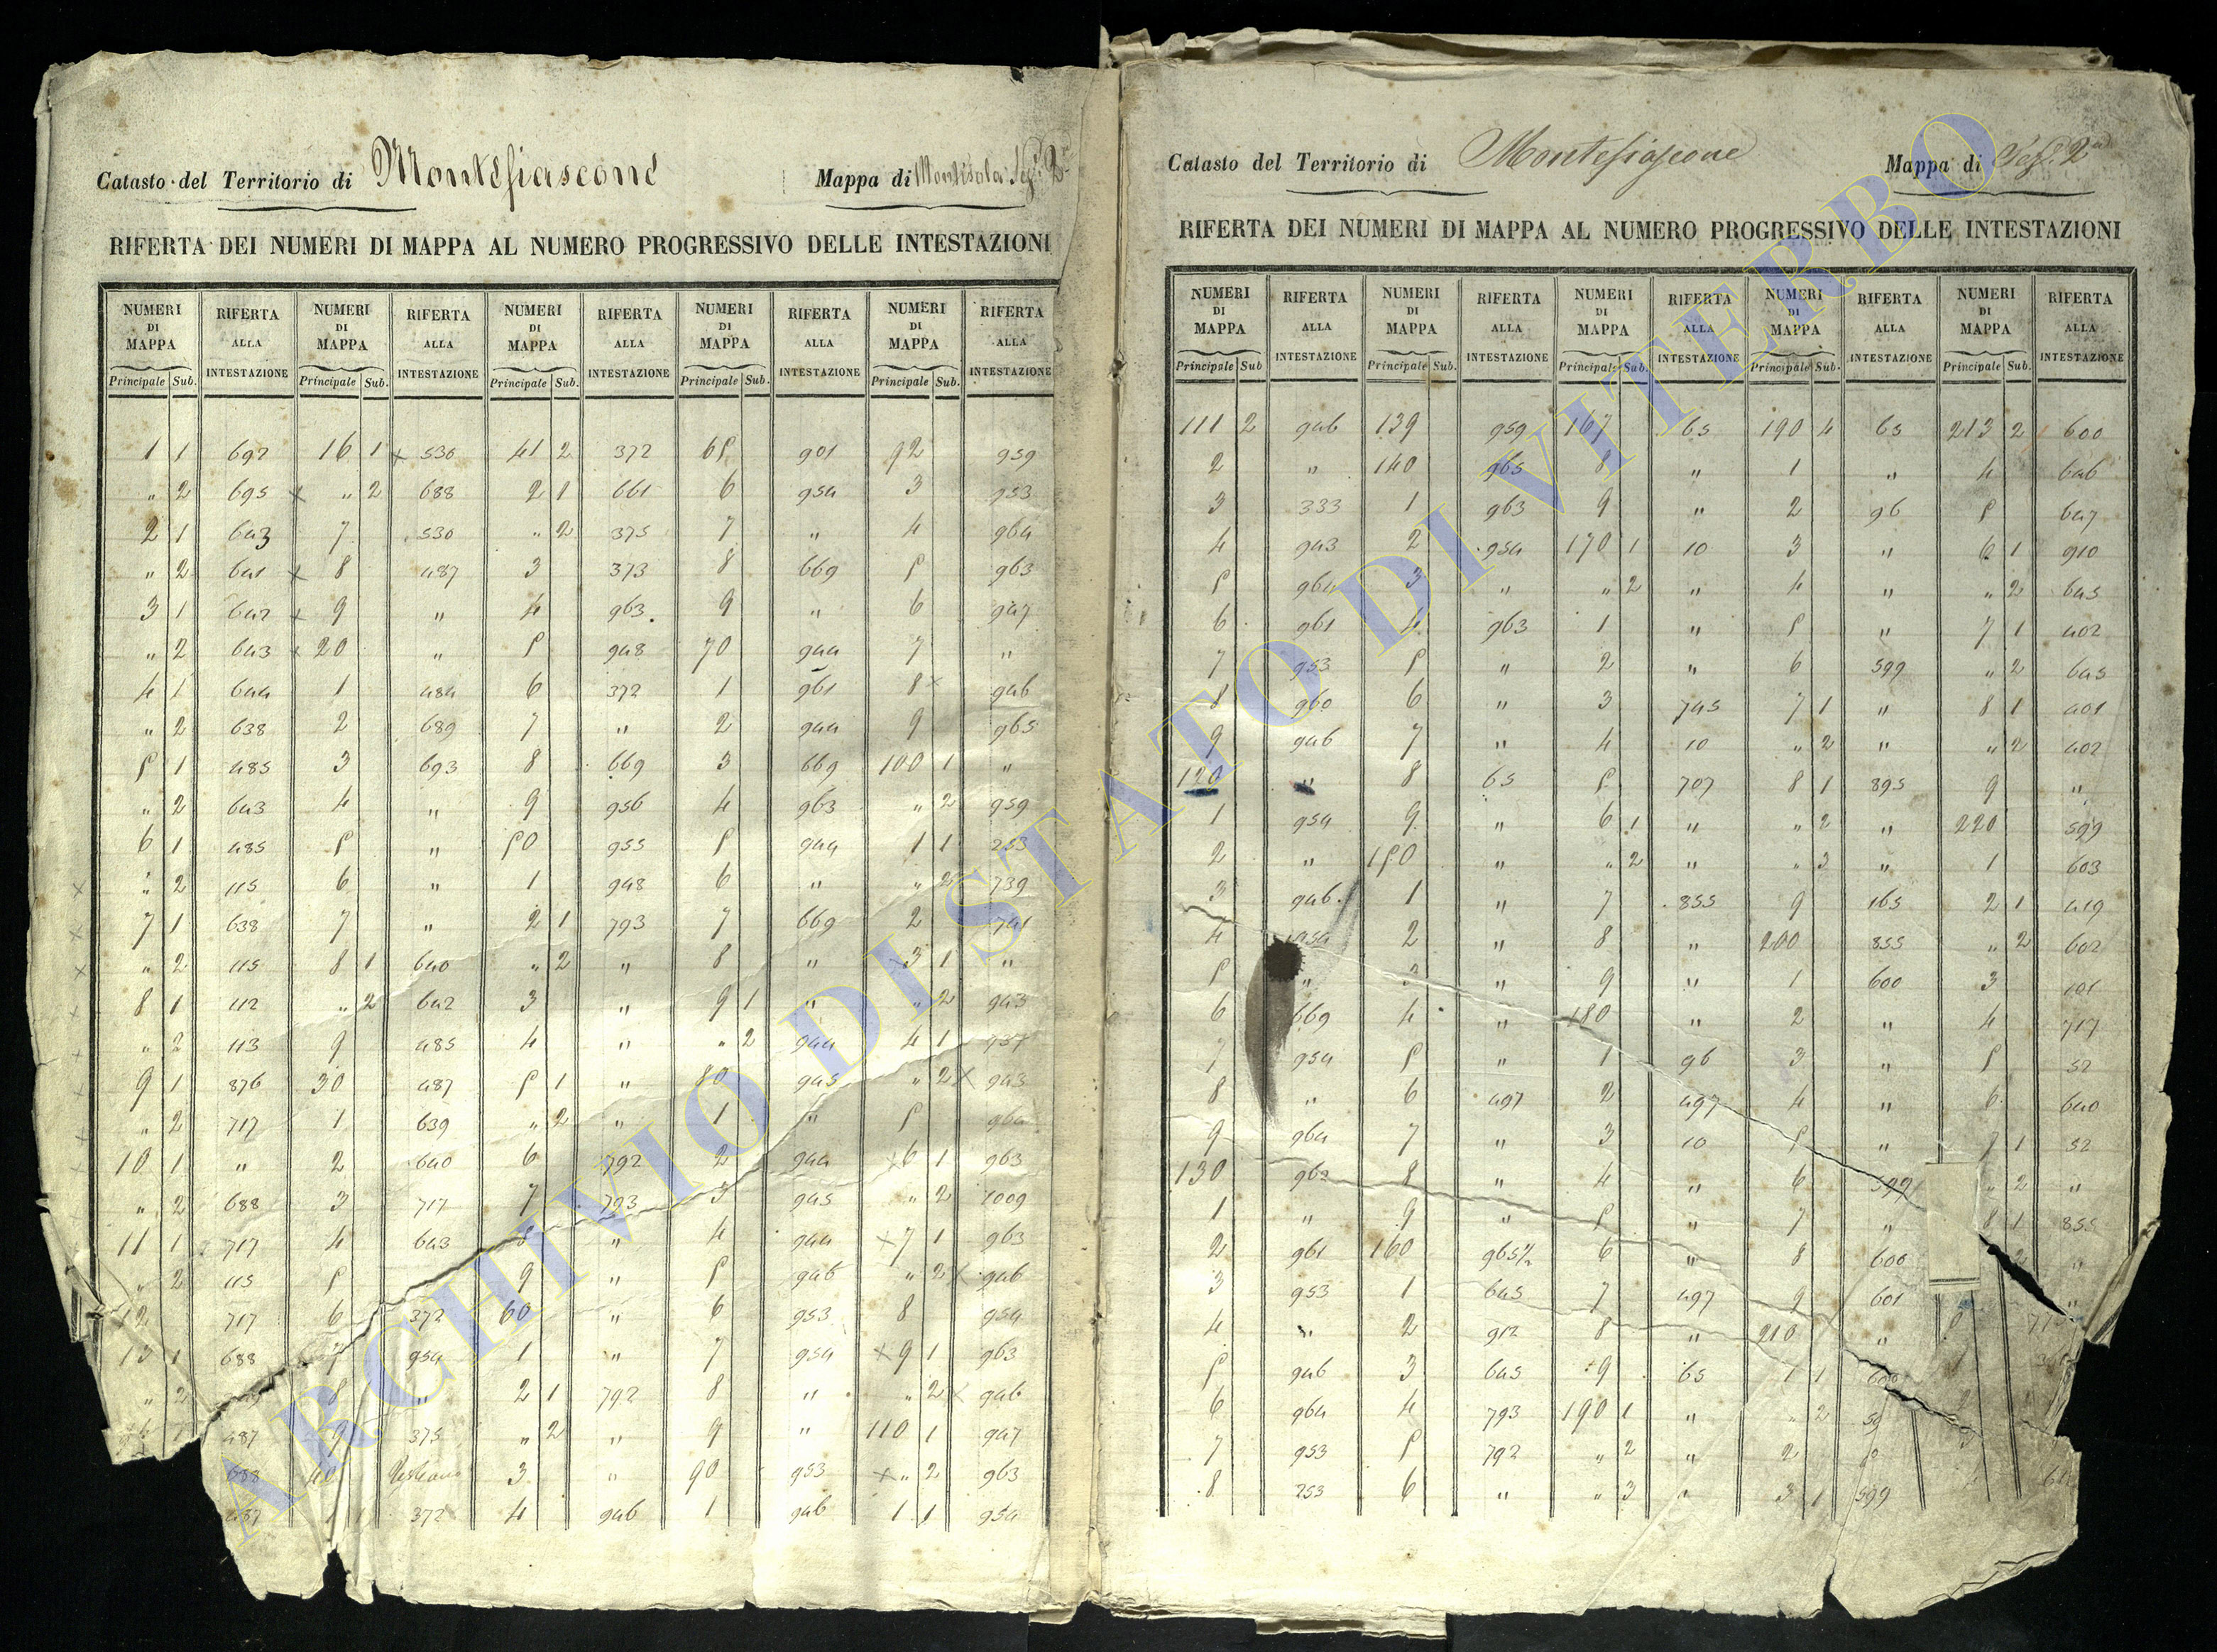 Catasto del Territorio di Montefiascone Mappa di Montisola Sez. 2ª
RIFERTA DEI NUMERI DI MAPPA AL NUMERO PROGRESSIVO DELLE INTESTAZIONI
NUMERI DI MAPPA RIFERTA ALLA INTESTAZIONE NUMERI DI MAPPA RIFERTA ALLA INTESTAZIONE NUMERI DI MAPPA RIFERTA ALLA INTESTAZIONE NUMERI DI MAPPA RIFERTA ALLA INTESTAZIONE NUMERI DI MAPPA RIFERTA ALLA INTESTAZIONE
Principale Sub. Principale Sub. Principale Sub. Principale Sub. Principale Sub.
1 1 692 16 1 x 530 41 2 372 65 901 92 959
„ 2 695 x „ 2 688 2 1 661 6 954 3 953
2 1 643 7 530 „ 2 375 7 „ 4 964
„ 2 641 x 8 487 3 373 8 669 5 963
3 1 642 x 9 „ 4 963 9 „ 6 947
„ 2 643 x 20 „ 5 948 70 944 7 „
4 1 644 1 484 6 372 1 961 8 x 946
„ 2 638 2 689 7 „ 2 944 9 965
5 1 485 3 693 8 669 3 669 100 1 „
„ 2 643 4 „ 9 956 4 963 „ 2 959
6 1 485 5 „ 50 955 5 944 1 1 253
x „ 2 115 6 „ 1 948 6 „ „ 2 739
x 7 1 638 7 „ 2 1 793 7 669 2 741
x „ 2 115 8 1 640 „ 2 „ 8 „ x 3 1 „
x 8 1 112 „ 2 642 3 „ 9 1 „ „ 2 943
x „ 2 113 9 485 4 „ „ 2 944 4 1 957
x 9 1 876 30 487 5 1 „ 80 945 „ 2 x 943
x „ 2 717 1 639 „ 2 „ 1 „ 5 964
10 1 „ 2 640 6 792 2 944 x 6 1 963
„ 2 688 3 717 7 793 3 945 „ 2 1009
11 1 717 4 643 8 „ 4 944 x 7 1 963
„ 2 115 5 9 „ 5 946 „ 2 x 946
12 717 6 372 60 „ 6 953 8 954
13 1 688 7 954 1 „ 7 954 x 9 1 963
„ 2 8 „ 2 1 792 8 „ „ 2 x 946
487 9 375 „ 2 „ 9 „ 110 1 947
688 40 3 „ 90 953 x „ 2 963
487 1 1 372 4 946 1 946 1 1 954
Catasto del Territorio di Montefiascone Mappa di Sez. 2ª
RIFERTA DEI NUMERI DI MAPPA AL NUMERO PROGRESSIVO DELLE INTESTAZIONI
NUMERI DI MAPPA RIFERTA ALLA INTESTAZIONE NUMERI DI MAPPA RIFERTA ALLA INTESTAZIONE NUMERI DI MAPPA RIFERTA ALLA INTESTAZIONE NUMERI DI MAPPA RIFERTA ALLA INTESTAZIONE NUMERI DI MAPPA RIFERTA ALLA INTESTAZIONE
Principale Sub Principale Sub. Principale Sub. Principale Sub. Principale Sub.
111 2 946 139 959 167 65 190 4 65 213 2 600
2 „ 140 965 8 „ 1 „ 4 646
3 333 1 963 9 „ 2 96 5 647
4 943 2 954 170 1 10 3 „ 6 1 910
5 964 3 „ „ 2 „ 4 „ „ 2 645
6 961 4 963 1 „ 5 „ 7 1 402
7 953 5 „ 2 „ 6 599 „ 2 645
8 960 6 „ 3 745 7 1 „ 8 1 401
9 946 7 „ 4 10 „ 2 „ „ 2 402
120 „ 8 65 5 707 8 1 895 9 „
1 954 9 „ 6 1 „ „ 2 „ 220 599
2 „ 150 „ „ 2 „ „ 3 „ 1 603
3 946 1 „ 7 855 9 165 2 1 419
4 954 2 „ 8 „ 200 855 „ 2 602
5 „ 3 „ 9 „ 1 600 3 101
6 669 4 „ 180 „ 2 „ 4 717
7 954 5 „ 1 96 3 „ 5 52
8 „ 6 497 2 497 4 „ 6 640
9 964 7 „ 3 10 5 „ 7 1 52
130 963 8 „ 4 „ 6 599 „ 2 „
1 „ 9 „ 5 „ 7 „ 8 1 855
2 961 160 965½ 6 „ 8 600 2 „
3 953 1 645 7 497 9 601 „
4 „ 2 912 8 „ 210 „
5 946 3 645 9 65 1 1 600
6 964 4 793 190 1 „ „ 2
7 953 5 792 „ 2 „ 2
8 253 6 „ „ 3 „ 3 1 599
ARCHIVIO DI STATO DI VITERBO